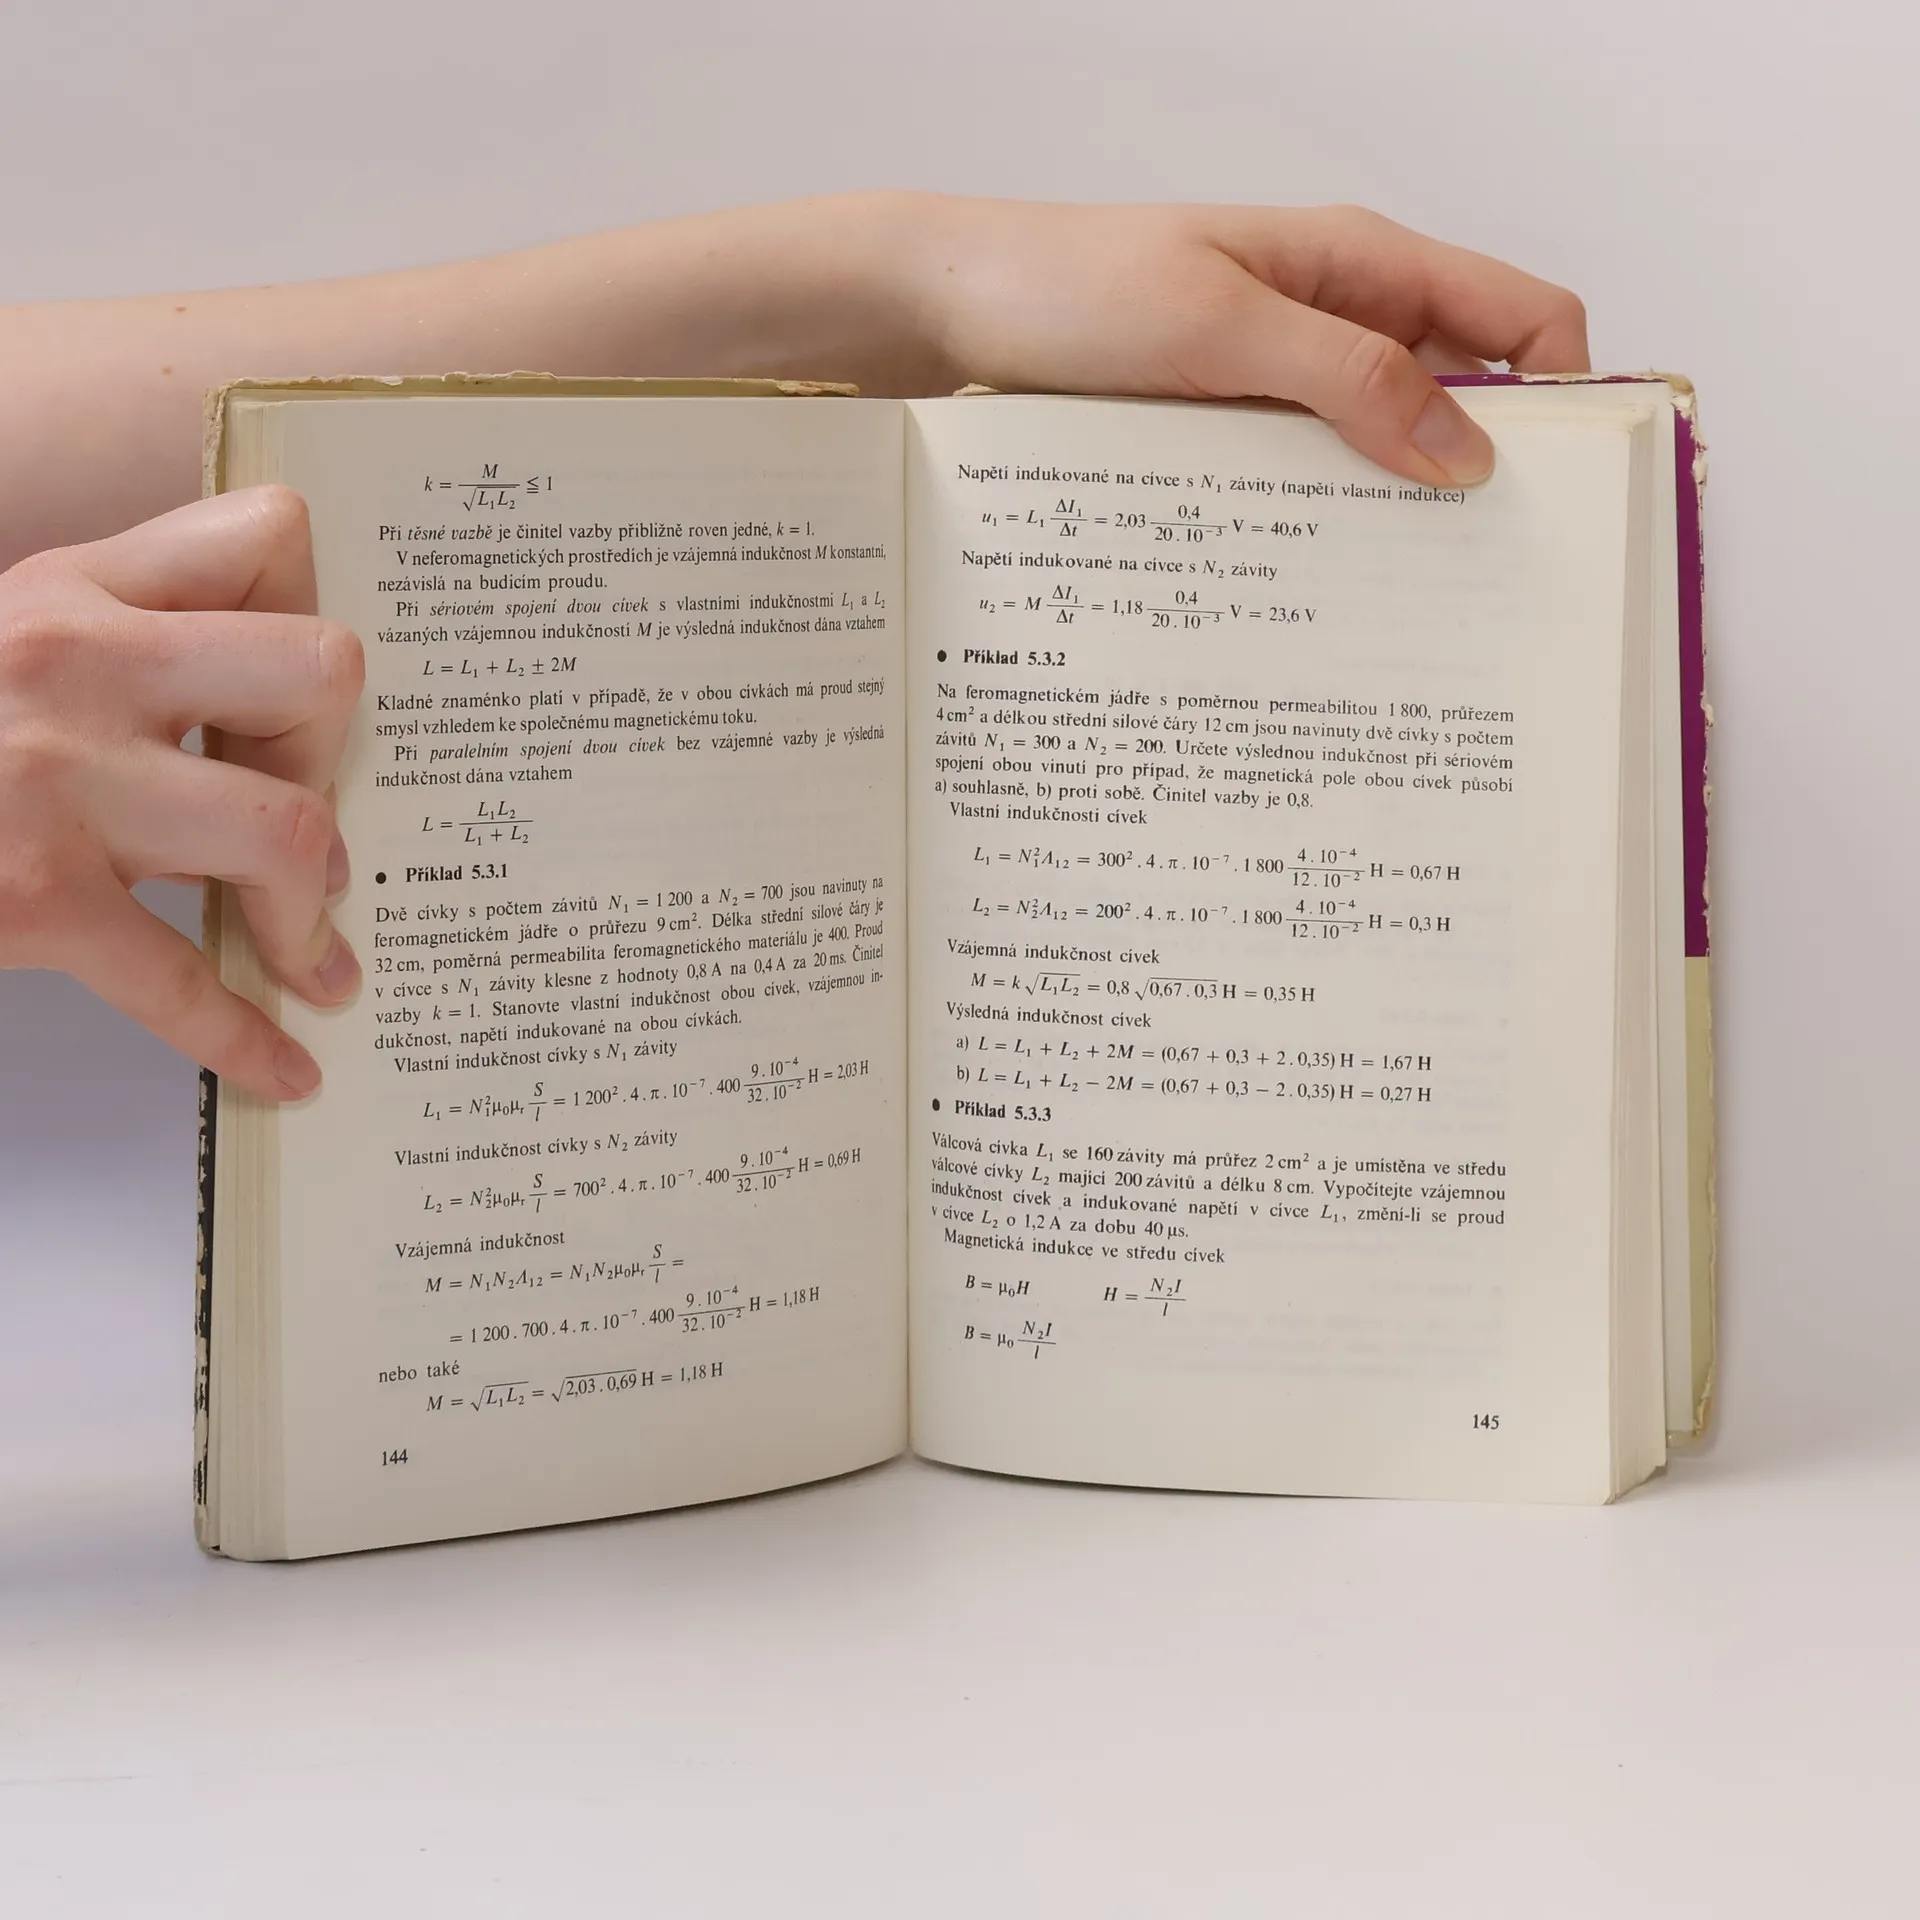 k = M / √L₁L₂ ≦ 1
Při těsné vazbě je činitel vazby přibližně roven jedné, k = 1.
V neferomagnetických prostředích je vzájemná indukčnost M konstantní,
nezávislá na budicím proudu.
Při sériovém spojení dvou cívek s vlastními indukčnostmi L₁ a L₂
vázaných vzájemnou indukčností M je výsledná indukčnost dána vztahem
L = L₁ + L₂ ± 2M
Kladné znaménko platí v případě, že v obou cívkách má proud stejný
smysl vzhledem ke společnému magnetickému toku.
Při paralelním spojení dvou cívek bez vzájemné vazby je výsledná
indukčnost dána vztahem
L = L₁L₂ / L₁ + L₂
● Příklad 5.3.1
Dvě cívky s počtem závitů N₁ = 1 200 a N₂ = 700 jsou navinuty na
feromagnetickém jádře o průřezu 9 cm². Délka střední silové čáry je
32 cm, poměrná permeabilita feromagnetického materiálu je 400. Proud
v cívce s N₁ závity klesne z hodnoty 0,8 A na 0,4 A za 20 ms. Činitel
vazby k = 1. Stanovte vlastní indukčnost obou cívek, vzájemnou in-
dukčnost, napětí indukované na obou cívkách.
Vlastní indukčnost cívky s N₁ závity
L₁ = N₁²μ₀μᵣ S / l = 1 200² . 4 . π . 10⁻⁷ . 400 9 . 10⁻⁴ / 32 . 10⁻² H = 2,03 H
Vlastní indukčnost cívky s N₂ závity
L₂ = N₂²μ₀μᵣ S / l = 700² . 4 . π . 10⁻⁷ . 400 9 . 10⁻⁴ / 32 . 10⁻² H = 0,69 H
Vzájemná indukčnost
M = N₁N₂Λ₁₂ = N₁N₂μ₀μᵣ S / l =
= 1 200 . 700 . 4 . π . 10⁻⁷ . 400 9 . 10⁻⁴ / 32 . 10⁻² H = 1,18 H
nebo také
M = √L₁L₂ = √2,03 . 0,69 H = 1,18 H
144
Napětí indukované na cívce s N₁ závity (napětí vlastní indukce)
u₁ = L₁ ΔI₁ / Δt = 2,03 0,4 / 20 . 10⁻³ V = 40,6 V
Napětí indukované na cívce s N₂ závity
u₂ = M ΔI₁ / Δt = 1,18 0,4 / 20 . 10⁻³ V = 23,6 V
● Příklad 5.3.2
Na feromagnetickém jádře s poměrnou permeabilitou 1 800, průřezem
4 cm² a délkou střední silové čáry 12 cm jsou navinuty dvě cívky s počtem
závitů N₁ = 300 a N₂ = 200. Určete výslednou indukčnost při sériovém
spojení obou vinutí pro případ, že magnetická pole obou cívek působí
a) souhlasně, b) proti sobě. Činitel vazby je 0,8.
Vlastní indukčnosti cívek
L₁ = N₁²Λ₁₂ = 300² . 4 . π . 10⁻⁷ . 1 800 4 . 10⁻⁴ / 12 . 10⁻² H = 0,67 H
L₂ = N₂²Λ₁₂ = 200² . 4 . π . 10⁻⁷ . 1 800 4 . 10⁻⁴ / 12 . 10⁻² H = 0,3 H
Vzájemná indukčnost cívek
M = k √L₁L₂ = 0,8 √0,67 . 0,3 H = 0,35 H
Výsledná indukčnost cívek
a) L = L₁ + L₂ + 2M = (0,67 + 0,3 + 2 . 0,35) H = 1,67 H
b) L = L₁ + L₂ − 2M = (0,67 + 0,3 − 2 . 0,35) H = 0,27 H
● Příklad 5.3.3
Válcová cívka L₁ se 160 závity má průřez 2 cm² a je umístěna ve středu
válcové cívky L₂ mající 200 závitů a délku 8 cm. Vypočítejte vzájemnou
indukčnost cívek a indukované napětí v cívce L₁, změní-li se proud
v cívce L₂ o 1,2 A za dobu 40 μs.
Magnetická indukce ve středu cívek
B = μ₀H H = N₂I / l
B = μ₀ N₂I / l
145